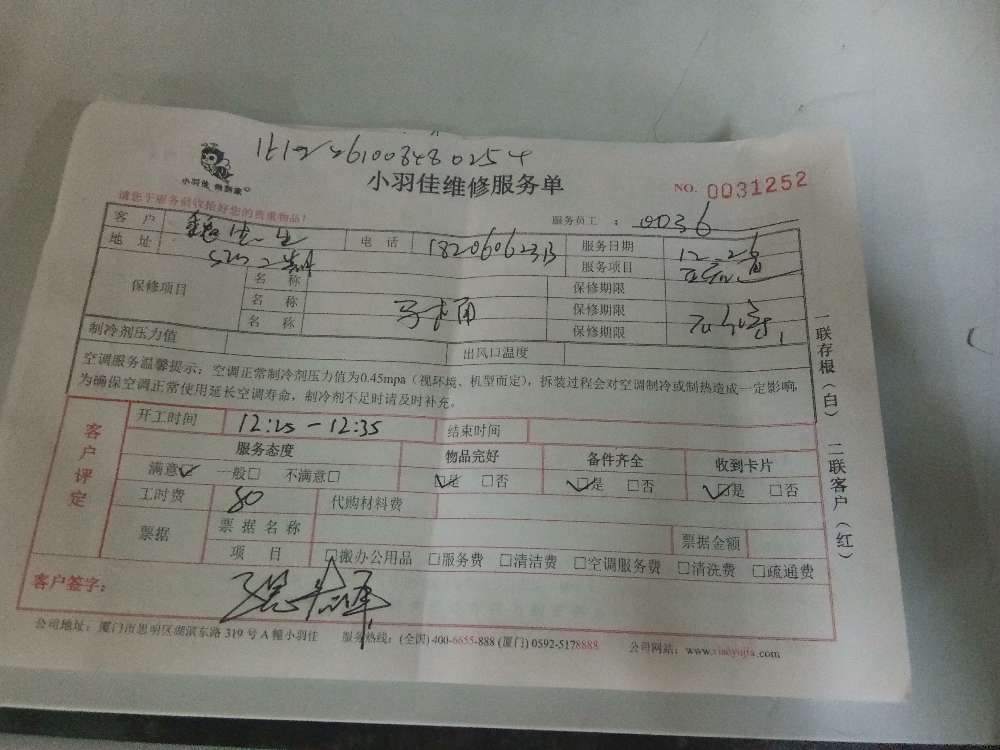 小羽佳 物到家
小羽佳维修服务单
NO. 0031252
请您于服务前收拾好您的贵重物品!
服务员工 : 0036
客户 电话 服务日期 12.26
地址 服务项目
保修项目 名称 保修期限
名称 保修期限
名称 保修期限
制冷剂压力值 出风口温度
空调服务温馨提示：空调正常制冷剂压力值为0.45mpa（视环境、机型而定），拆装过程会对空调制冷或制热造成一定影响，
为确保空调正常使用延长空调寿命，制冷剂不足时请及时补充。
客户评定
开工时间 12:25-12:35 结束时间
服务态度 物品完好 备件齐全 收到卡片
满意☑ 一般□ 不满意□ ☑是 □否 ☑是 □否 ☑是 □否
工时费 80 代购材料费
票据 票据名称 票据金额
项目 □搬办公用品 □服务费 □清洁费 □空调服务费 □清洗费 □疏通费
客户签字：
公司地址：厦门市思明区湖滨东路 319 号 A 幢小羽佳 服务热线：(全国) 400-6655-888 (厦门) 0592-5178888 公司网站：www.xiaoyujia.com
一联存根（白） 二联客户（红）